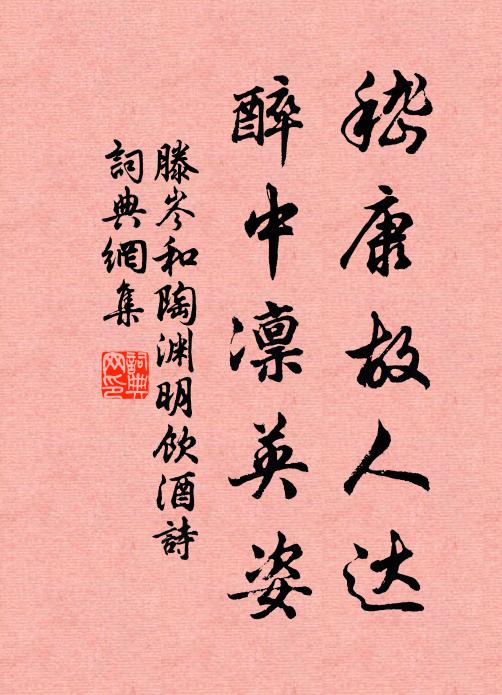 嵇康故人达
醉中凛英姿
滕岑和陶渊明饮酒詩
詞典網集
詞典网印